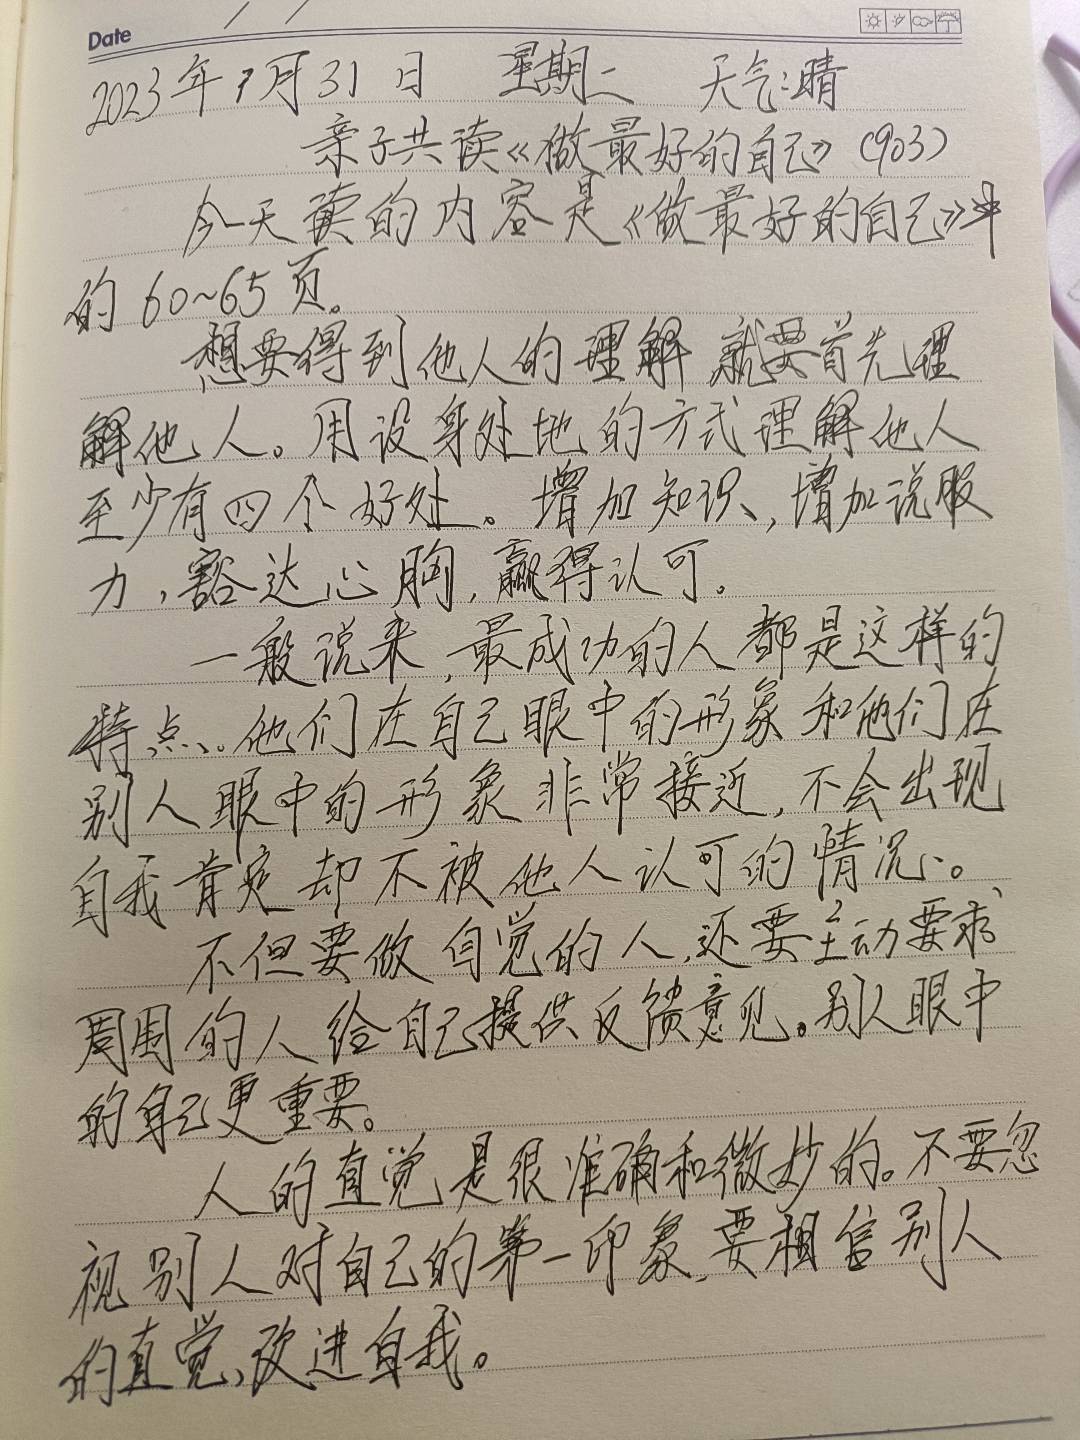 Date
2023年7月31日 星期二 天气:晴
亲子共读《做最好的自己》(903)
今天读的内容是《做最好的自己》中
的60~65页。
想要得到他人的理解 就要首先理
解他人。用设身处地的方式理解他人
至少有四个好处。增加知识,增加说服
力,豁达心胸,赢得认可。
一般说来,最成功的人都是这样的
特点。他们在自己眼中的形象和他们在
别人眼中的形象非常接近,不会出现
自我肯定却不被他人认可的情况。
不但要做自觉的人,还要主动要求
周围的人给自己提供反馈意见。别人眼中
的自己更重要。
人的直觉是很准确和微妙的。不要忽
视别人对自己的第一印象,要相信别人
的直觉、改进自我。